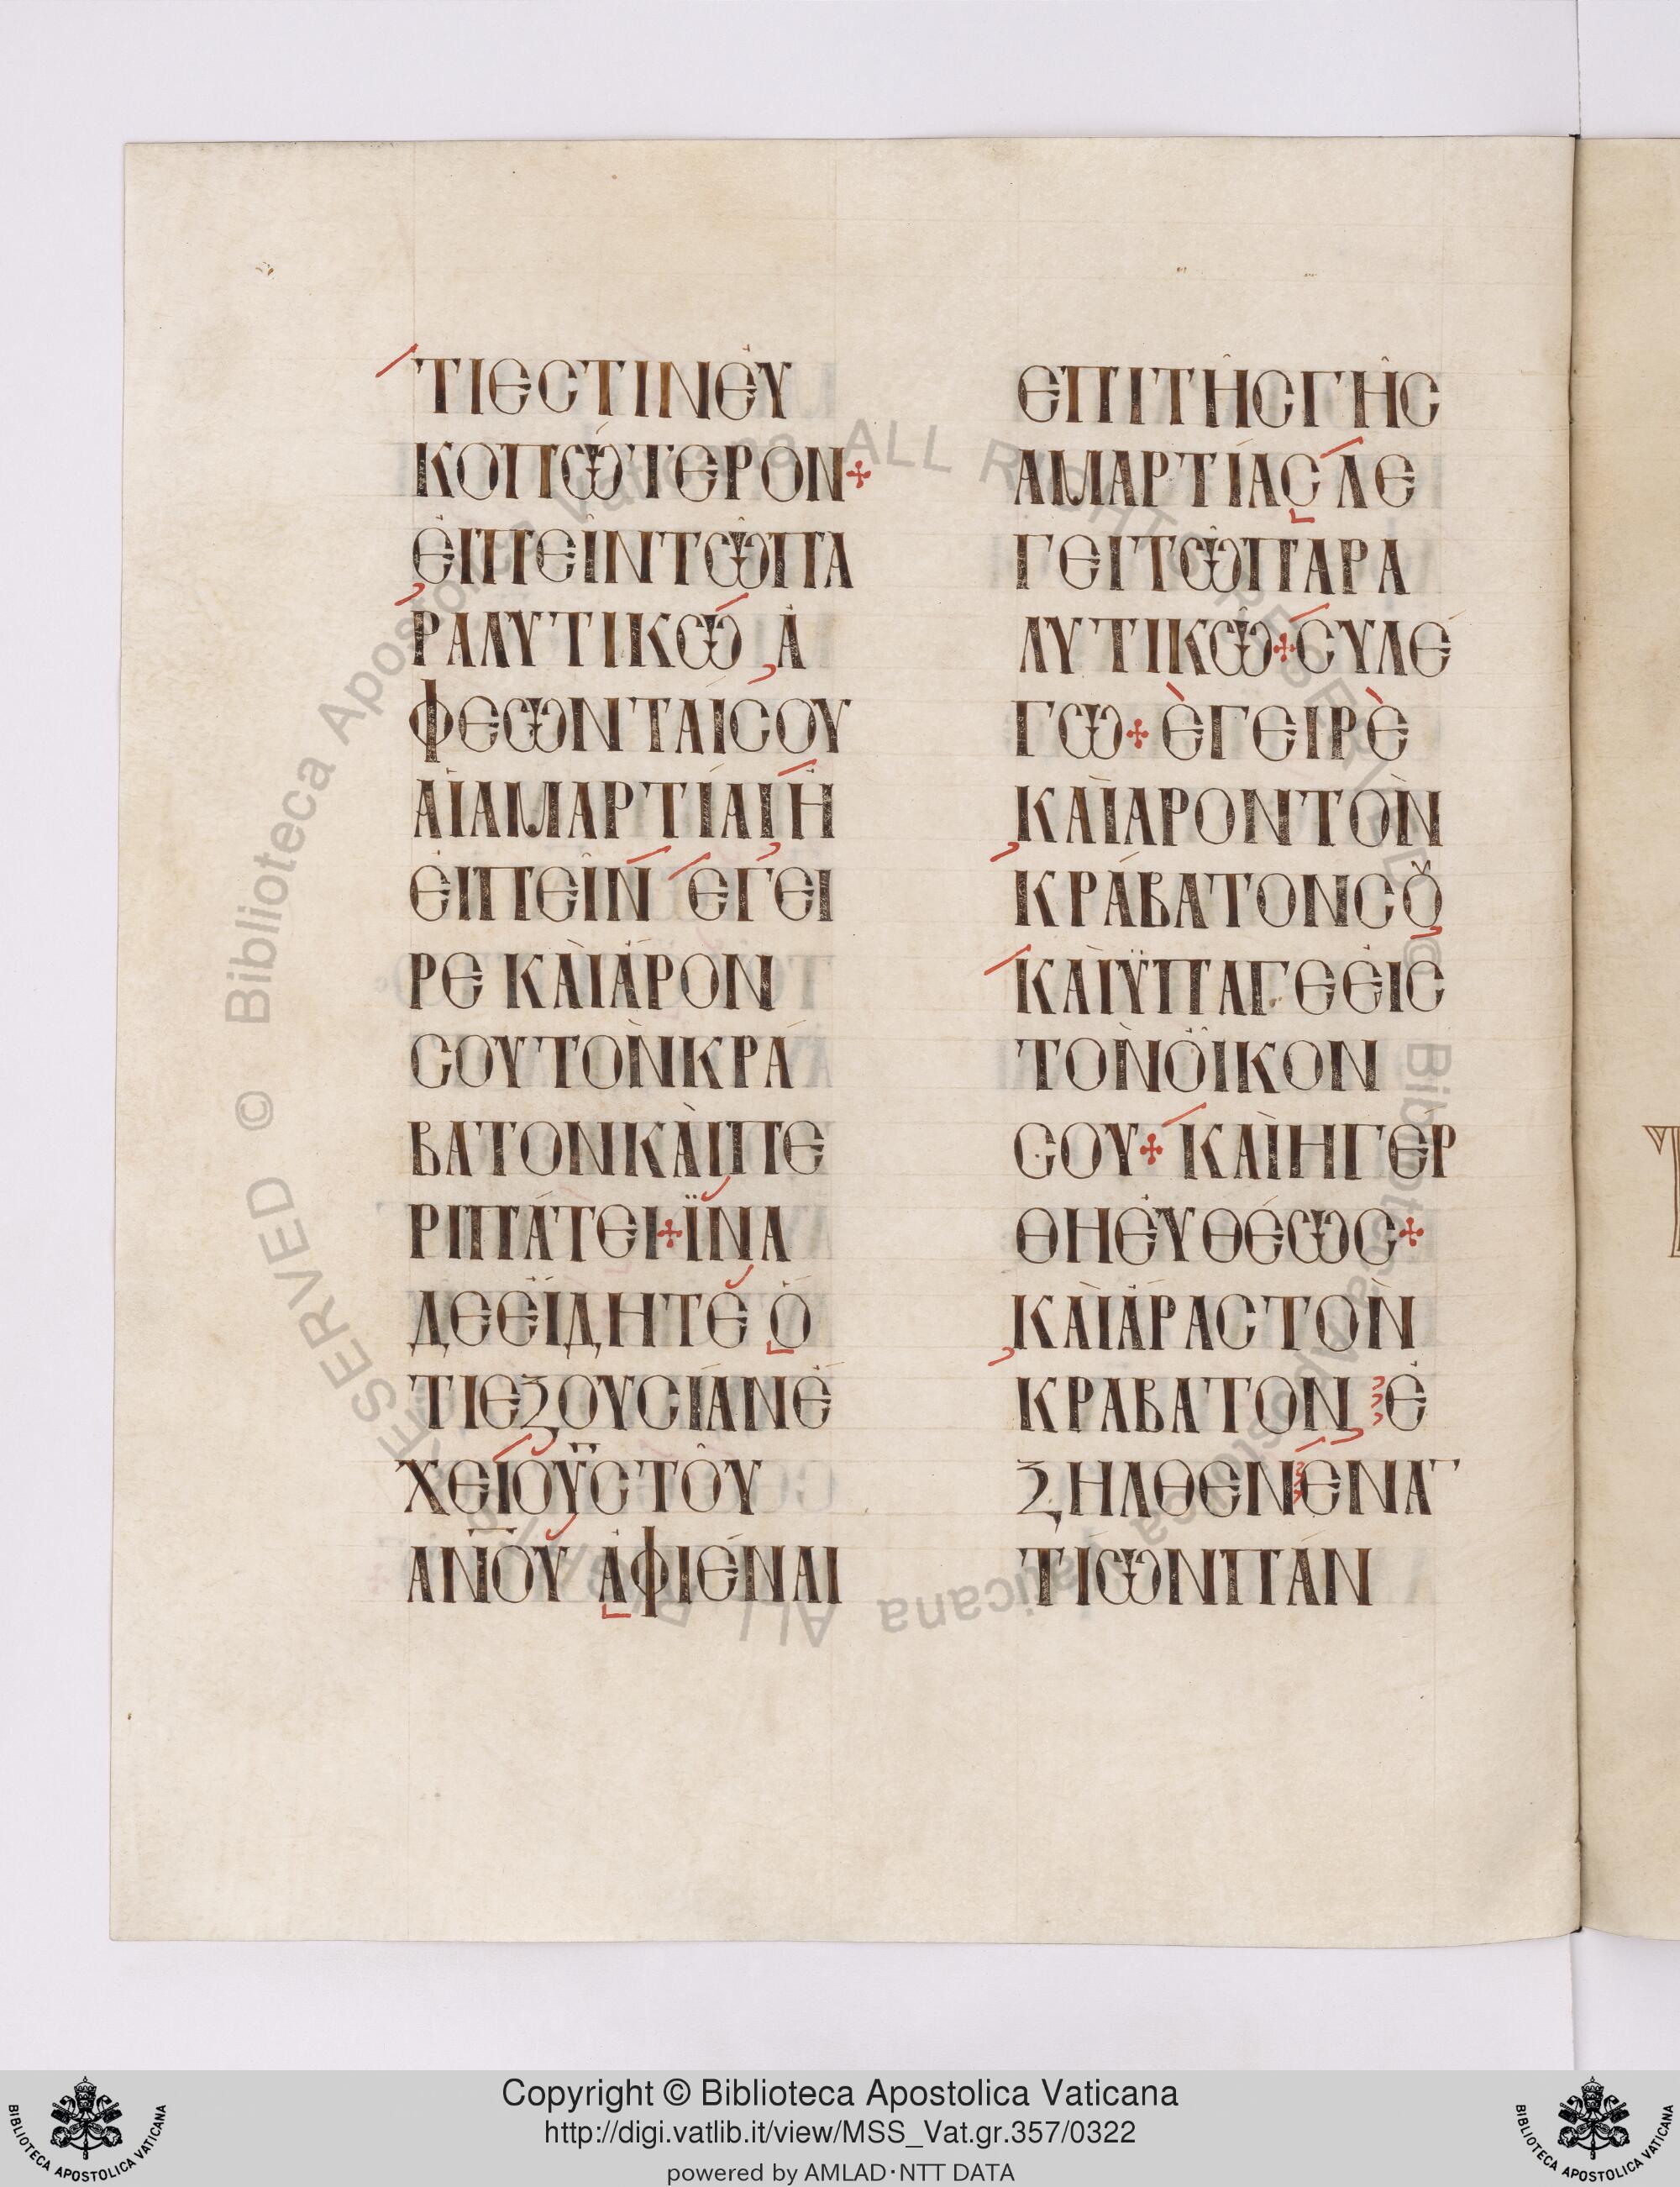 ΤΙΕϹΤΙΝΕΥ
ΚΟΠΩΤΕΡΟΝ
ΕΙΠΕΙΝΤΩΠΑ
ΡΑΛΥΤΙΚΩ Α
ΦΕΩΝΤΑΙϹΟΥ
ΑΙΑΜΑΡΤΙΑΙΗ
ΕΙΠΕΙΝ ΕΓΕΙ
ΡΕ ΚΑΙΑΡΟΝ
ϹΟΥΤΟΝΚΡΑ
ΒΑΤΟΝΚΑΙΠΕ
ΡΙΠΑΤΕΙ+ΪΝΑ
ΔΕΕΙΔΗΤΕ Ο
ΤΙΕΞΟΥϹΙΑΝΕ
ΧΕΙΟΫϹΤΟΥ
ΑΝΟΥ ΑΦΙΕΝΑΙ
ΕΠΙΤΗϹΓΗϹ
ΑΜΑΡΤΙΑϹ ΛΕ
ΓΕΙΤΩΠΑΡΑ
ΛΥΤΙΚΩ+ϹΥΛΕ
ΓΩ+ ΕΓΕΙΡΕ
ΚΑΙΑΡΟΝΤΟΝ
ΚΡΑΒΑΤΟΝϹȢ
ΚΑΙΫΠΑΓΕΕΙϹ
ΤΟΝΟΙΚΟΝ
ϹΟΥ+ ΚΑΙΗΓΕΡ
ΘΗΕΥΘΕΩϹ+
ΚΑΙΑΡΑϹΤΟΝ
ΚΡΑΒΑΤΟΝ Ε
ΞΗΛΘΕΝΕΝΑΤ
ΤΙΩΝΠΑΝ
© Biblioteca Apostolica Vaticana ALL RIGHTS RESERVED © Biblioteca Apostolica Vaticana ALL RIGHTS RESERVED
Copyright © Biblioteca Apostolica Vaticana
http://digi.vatlib.it/view/MSS_Vat.gr.357/0322
powered by AMLAD·NTT DATA
BIBLIOTECA APOSTOLICA VATICANA
BIBLIOTECA APOSTOLICA VATICANA